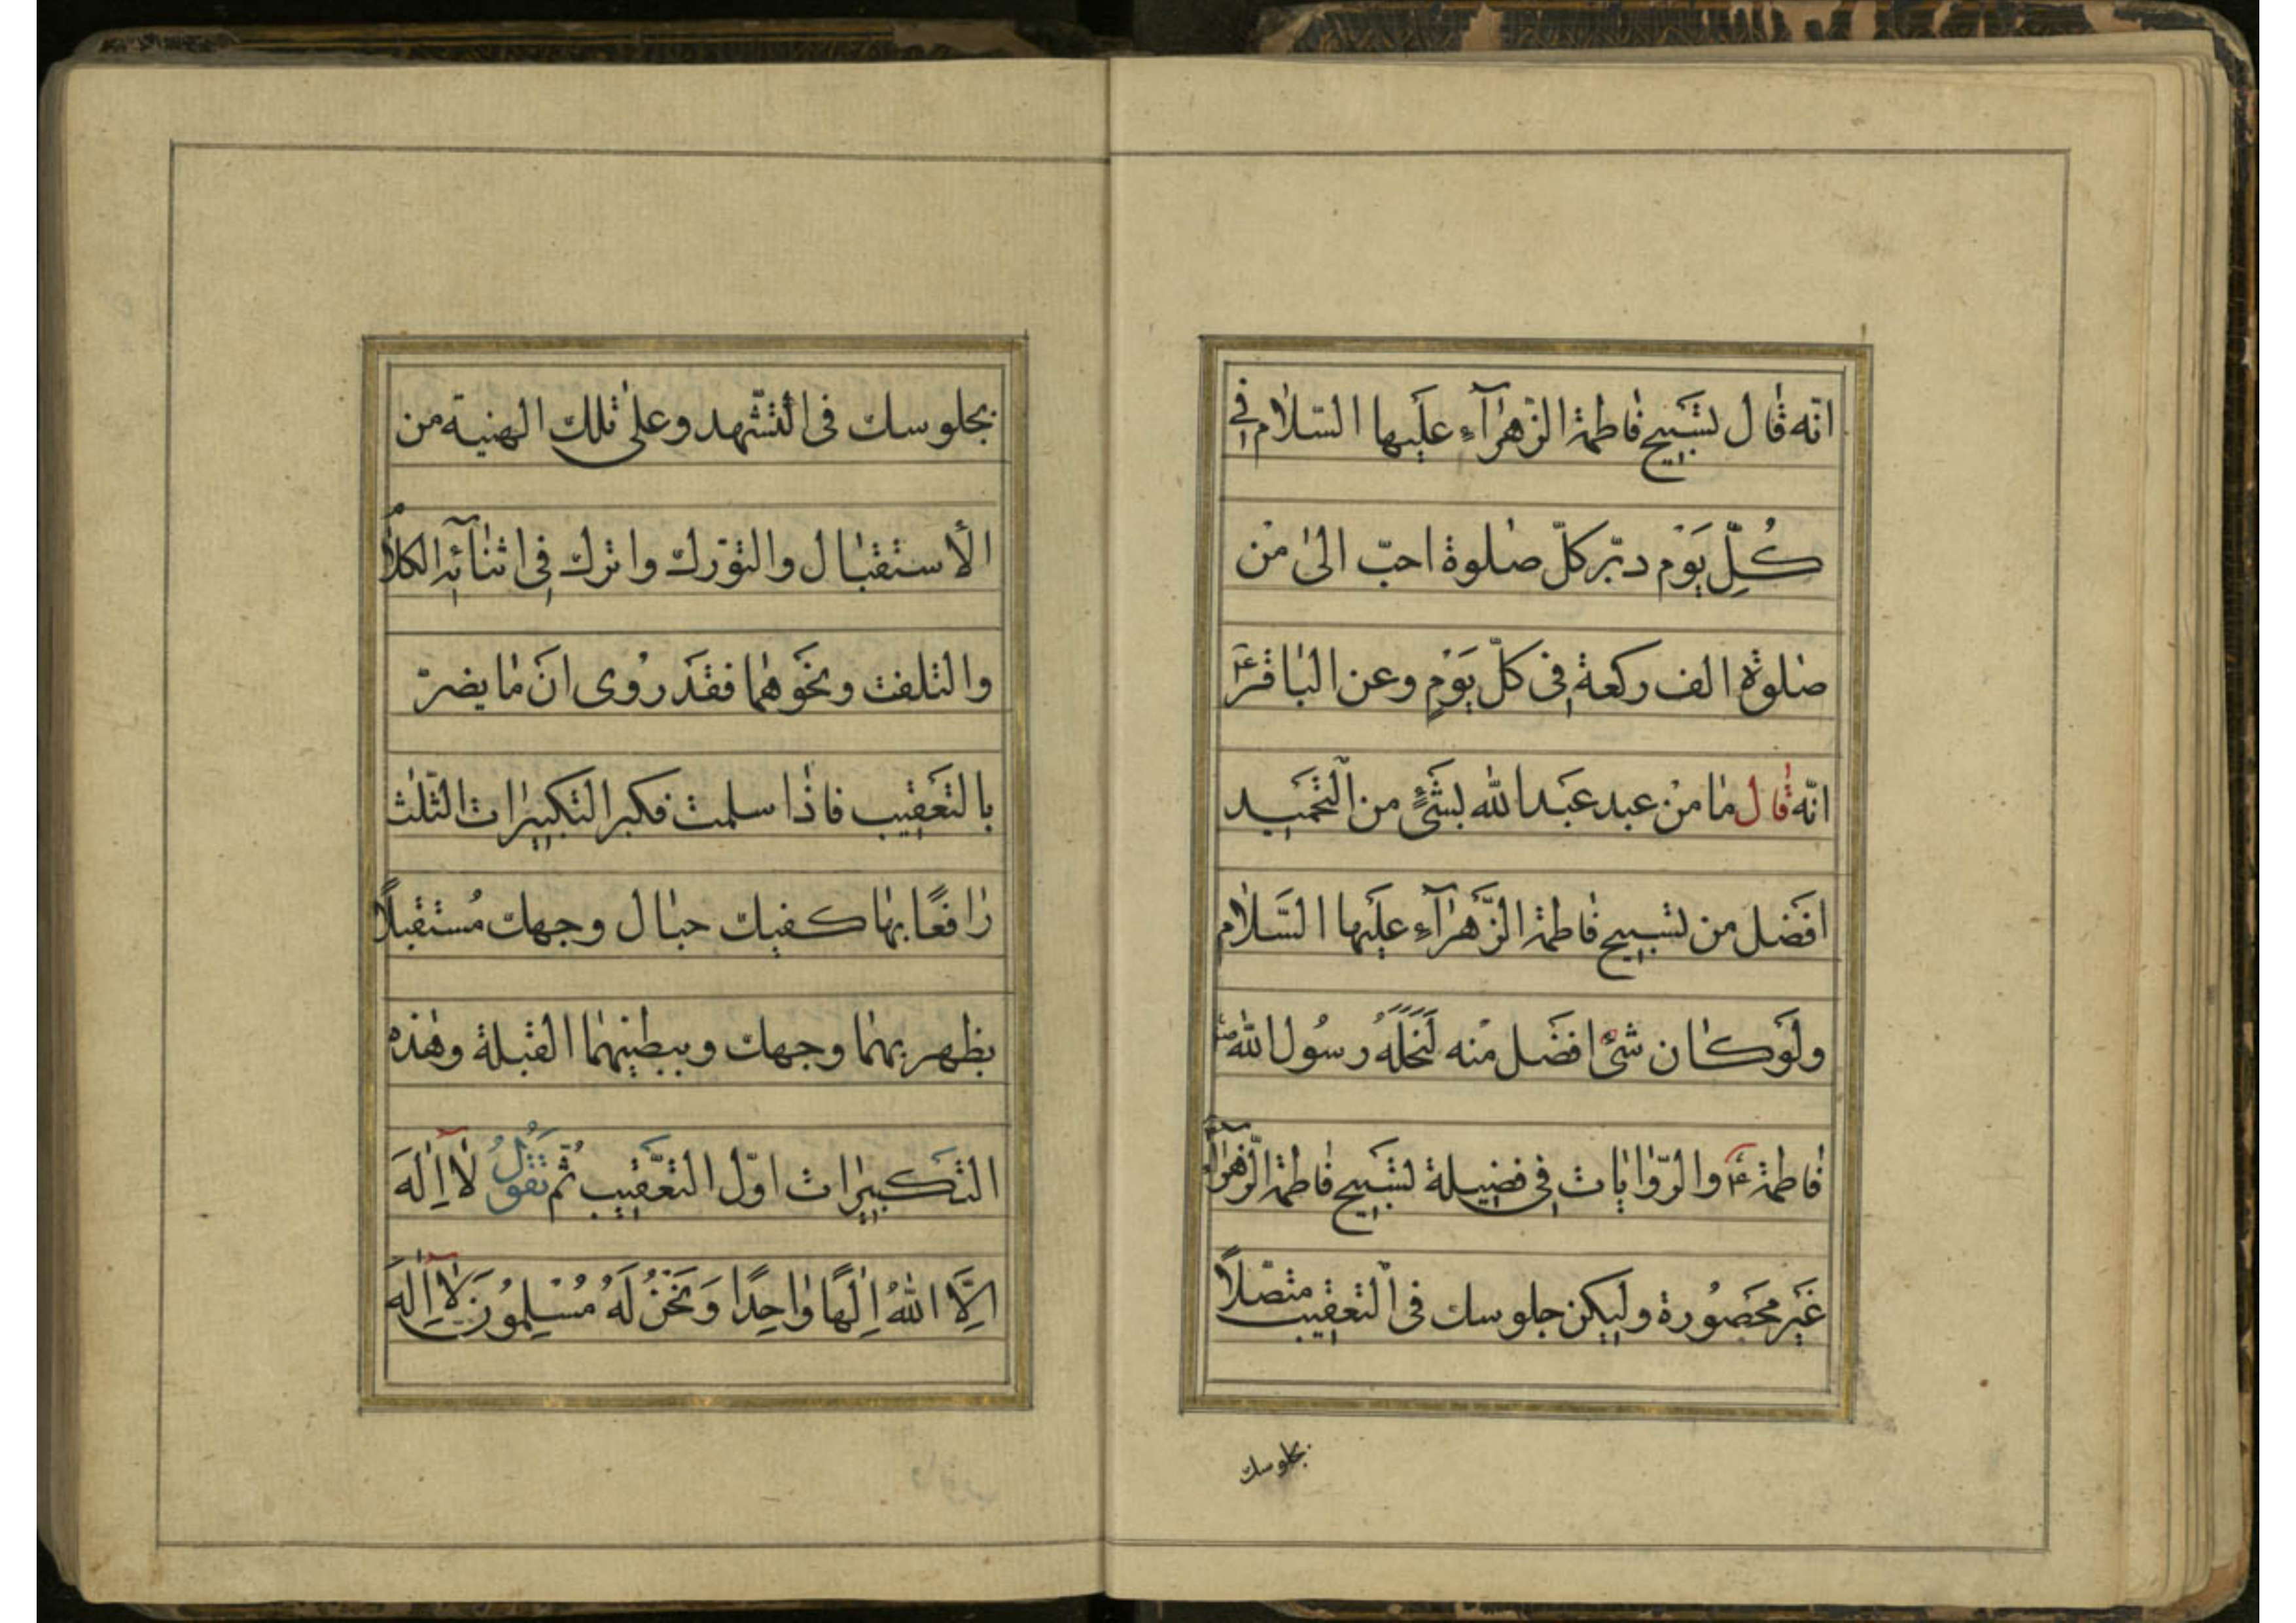 انّه قال تسَبيح فاطمة الزّهرآءِ علَيها السّلام في
كُلِّ يَوْم دبّر كلّ صلوة احبّ الىٰ مْن
صلوةِ الف ركعة فِى كلّ يَوْمٍ وعن الباقرؑ
انّه قال ما منْ عبد عبَد الله بشَئٍ من الْتحَميد
افضَل من تسبيح فاطمة الزَّهرآءِ علَيها السَّلام
ولَوكان شئٌ افضَل مْنه لَنَحَلَهُ رسُول الله ص
فاطمة ع والرّوايات فِى فضيلة تسَبيح فاطمة الزّهرآء
غَير محَصُورة وليكن جلوسك فى الْتعقيب متصّلاً
بجلوسك
بجلوسك فى الْتشّهد وعلىٰ تلك الهنية من
الأستقبال والتوّرك واترك فِى اثنآئِه الكلام
والتلفت ونحَوهما فقَد رُوى انَ ما يضرّ
بالتعَقيب فاذا سلمت فكبر التكبيرات الثّلٰث
رافعًا بها كفيك حيال وجهك مُستقبلاً
بظهر بهما وجهك وببطنهما القبلة وهٰذه
التكَبيرات اوّل التعَّقيب ثُمّ تَقُولُ لآ اِلٰهَ
اِلَّا اللهُ اِلٰهًا واحِدًا وَنَحْنُ لَهُ مُسْلِمُونَ لآ اِلٰهَ